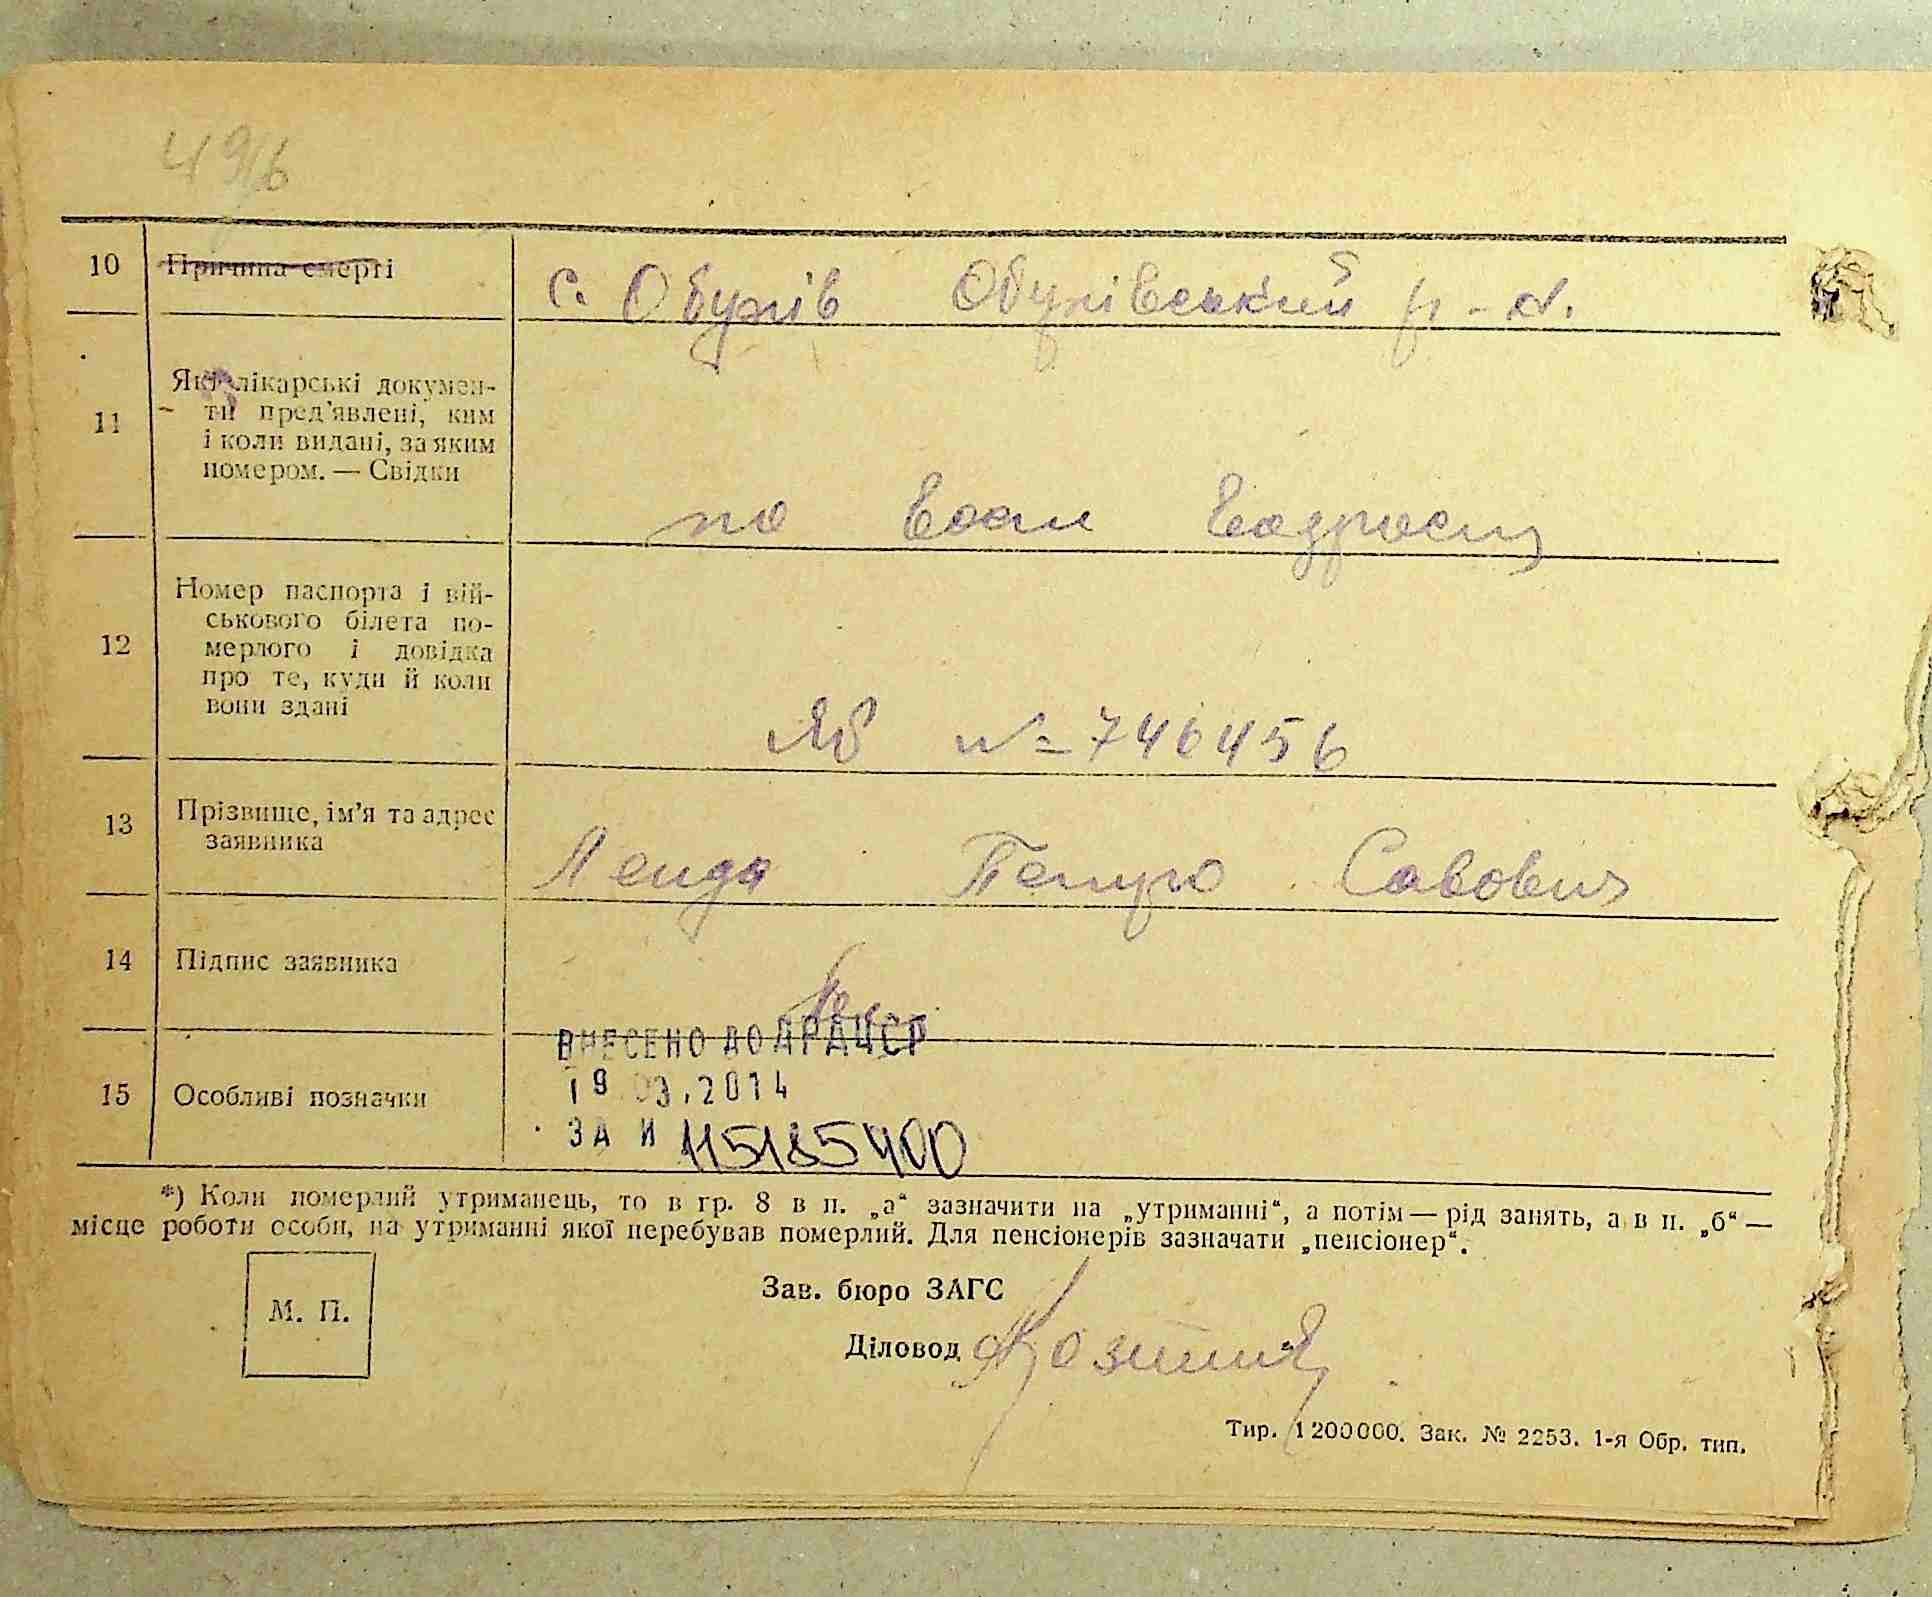 496
10 Причина смерті с. Обухів Обухівський р-н.
11 Які лікарські докумен-
ти пред'явлені, ким
і коли видані, за яким
номером. — Свідки
по
12 Номер паспорта і вій-
ськового білета по-
мерлого і довідка
про те, куди й коли
вони здані
ЯБ № 746456
13 Прізвище, ім'я та адрес
заявника
Ленда Петро Савович
14 Підпис заявника
ВНЕСЕНО ДО ДРАЦСР
19 03.2014
15 Особливі позначки
ЗА И 115185400
*) Коли померлий утриманець, то в гр. 8 в п. „а“ зазначити на „утриманні“, а потім — рід занять, а в п. „б“ —
місце роботи особи, на утриманні якої перебував померлий. Для пенсіонерів зазначати „пенсіонер“.
М. П.
Зав. бюро ЗАГС
Діловод
Тир. 1 200 000. Зак. № 2253. 1-я Обр. тип.